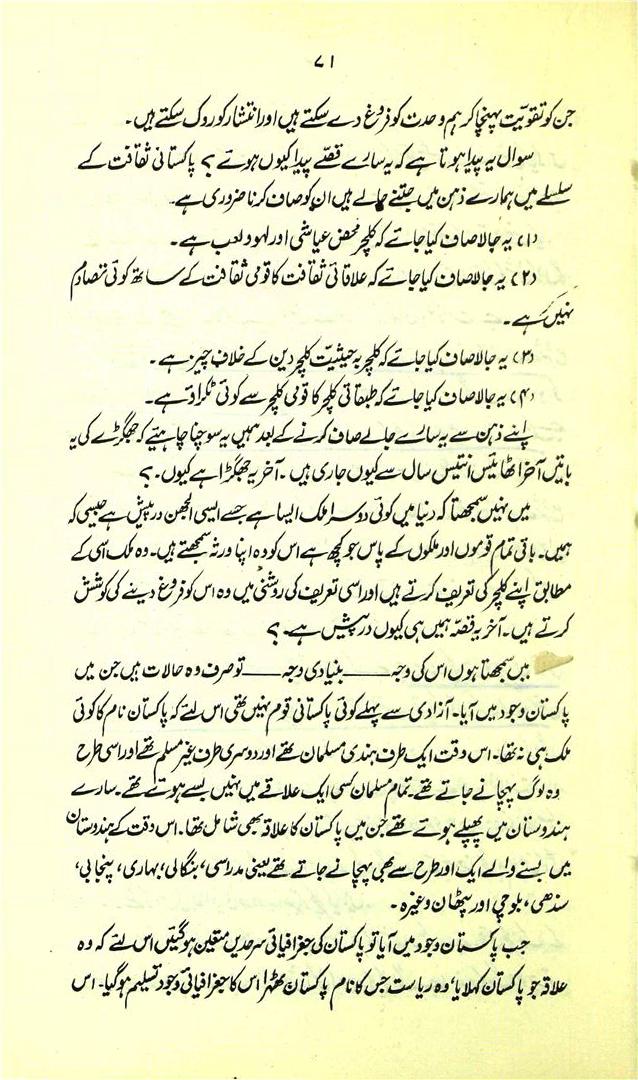 ۷۱
جن کو تقویت پہنچا کر ہم وحدت کو فروغ دے سکتے ہیں اور انتشار کو روک سکتے ہیں۔
سوال یہ پیدا ہوتا ہے کہ یہ سارے قصّے پیدا کیوں ہوئے؟ پاکستانی ثقافت کے
سلسلے میں ہمارے ذہن میں جتنے جالے ہیں ان کو صاف کرنا ضروری ہے۔
(۱) یہ جالا صاف کیا جائے کہ کلچر محض عیاشی اور لہو و لعب ہے۔
(۲) یہ جالا صاف کیا جائے کہ علاقائی ثقافت کا قومی ثقافت کے ساتھ کوئی تصادم
نہیں ہے۔
(۳) یہ جالا صاف کیا جائے کہ کلچر بہ حیثیت کلچر دین کے خلاف چیز ہے۔
(۴) یہ جالا صاف کیا جائے کہ طبقاتی کلچر کا قومی کلچر سے کوئی ٹکراؤ ہے۔
اپنے ذہن سے یہ سارے جالے صاف کرنے کے بعد ہمیں یہ سوچنا چاہیئے کہ جھگڑے کی یہ
باتیں آخر اٹھائیس انتیس سال سے کیوں جاری ہیں۔ آخر یہ جھگڑا ہے کیوں۔؟
میں نہیں سمجھتا کہ دنیا میں کوئی دوسرا ملک ایسا ہے جسے ایسی الجھن درپیش ہے جیسی کہ
ہمیں۔ باقی تمام قوموں اور ملکوں کے پاس جو کچھ ہے اس کو وہ اپنا ورثہ سمجھتے ہیں۔ وہ ملک اسی کے
مطابق اپنے کلچر کی تعریف کرتے ہیں اور اسی تعریف کی روشنی میں وہ اس کو فروغ دینے کی کوشش
کرتے ہیں۔ آخر یہ قصّہ ہمیں ہی کیوں درپیش ہے۔؟
میں سمجھتا ہوں اس کی وجہ ——— بنیادی وجہ ——— تو صرف وہ حالات ہیں جن میں
پاکستان وجود میں آیا۔ آزادی سے پہلے کوئی پاکستانی قوم نہیں تھی اس لئے کہ پاکستان نام کا کوئی
ملک ہی نہ تھا۔ اس وقت ایک طرف ہندی مسلمان تھے اور دوسری طرف غیر مسلم تھے اور اسی طرح
وہ لوگ پہچانے جاتے تھے۔ تمام مسلمان کسی ایک علاقے میں نہیں بسے ہوئے تھے۔ سارے
ہندوستان میں پھیلے ہوئے تھے جن میں پاکستان کا علاقہ بھی شامل تھا۔ اس وقت کے ہندوستان
میں بسنے والے ایک اور طرح سے بھی پہچانے جاتے تھے یعنی مدراسی، بنگالی، بہاری، پنجابی،
سندھی، بلوچی اور پٹھان وغیرہ۔
جب پاکستان وجود میں آیا تو پاکستان کی جغرافیائی سرحدیں متعین ہو گئیں اس لئے کہ وہ
علاقہ جو پاکستان کہلایا، وہ ریاست جس کا نام پاکستان ٹھہرا اس کا جغرافیائی وجود تسلیم ہو گیا۔ اس